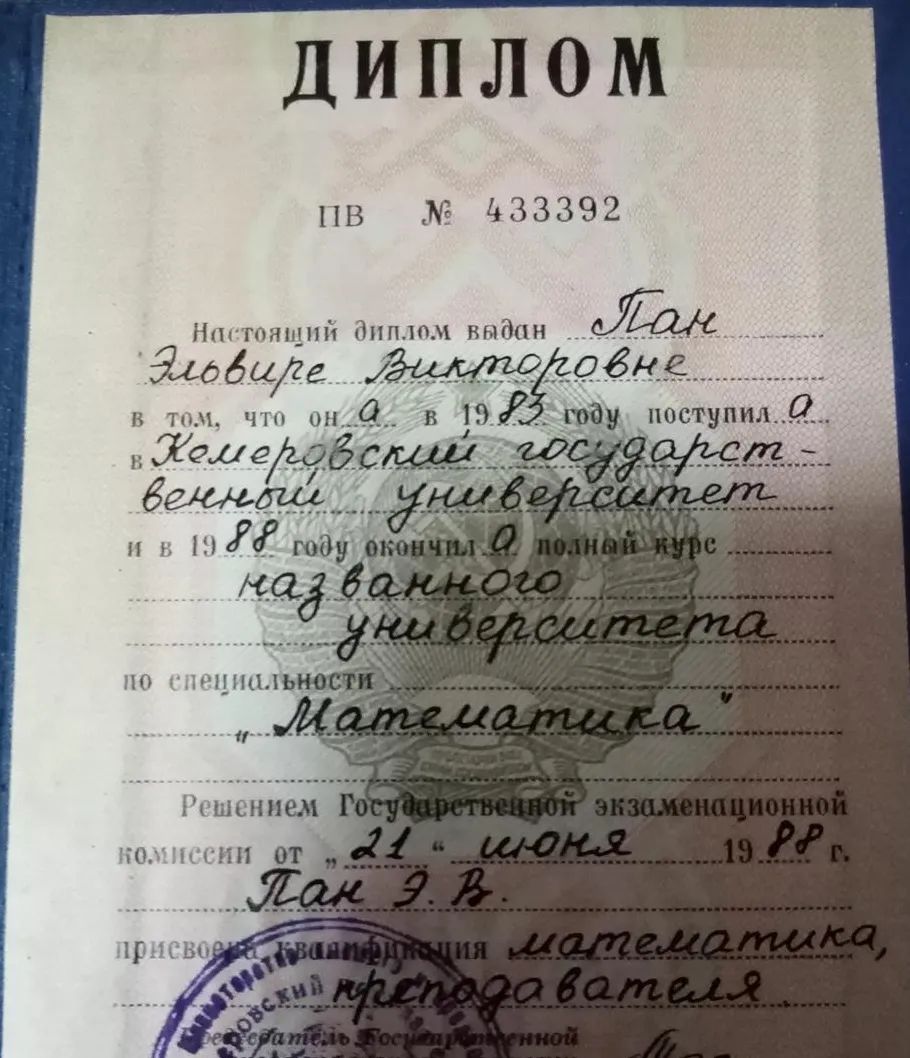 ДИПЛОМ
ПВ № 433392
Настоящий диплом выдан Пан
Эльвире Викторовне
в том, что он а в 1983 году поступил а
в Кемеровский государст-
венный университет
и в 1988 году окончил а полный курс
названного
университета
по специальности
„Математика"
Решением Государственной экзаменационной
комиссии от „21" июня 1988 г.
Пан Э. В.
присвоена квалификация математика,
преподавателя.
Председатель Государственной